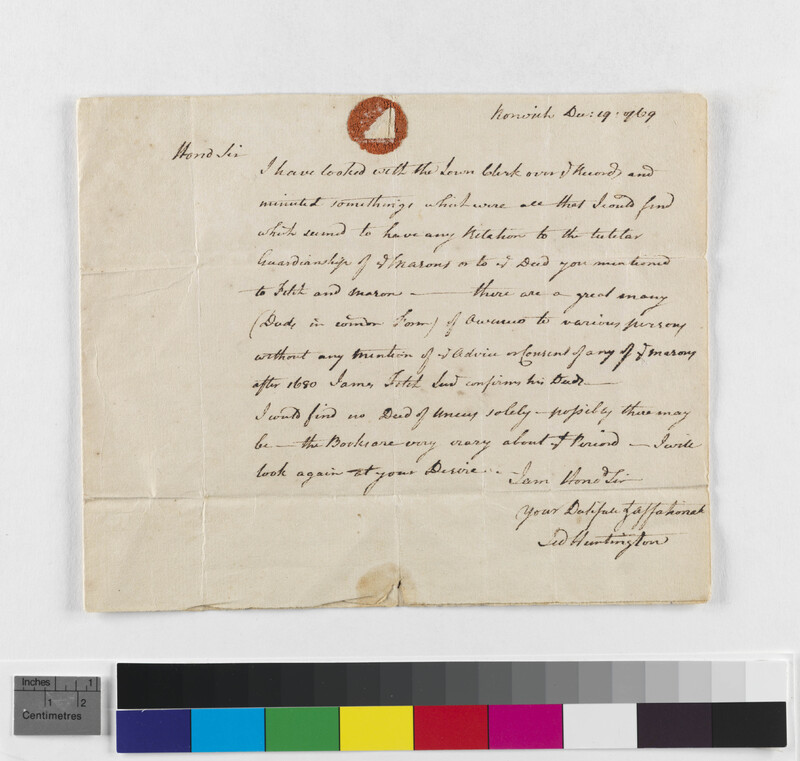 Norwich Dec: 19. 1769
Hond Sir
I have looked with the Town Clerk over ye Records and
minuted somethings which were all that I could find
which seemed to have any Relation to the tutelar
Guardianship of ye Masons or to ye Deed you mentioned
to Fitch and Mason — there are a great many
(Deeds in common Form) of Owaneco to various persons
without any Mention of ye Advice or Consent of any of ye Masons
after 1680 James Fitch confirms his Deeds —
I could find no Deed of Uncas solely — possibly there may
be — the Books are very crazy about yt Period — I will
look again at your Desire — I am Hond Sir
Your Dutifull & affectionate
Jed Huntington
Inches 1
1 2
Centimetres